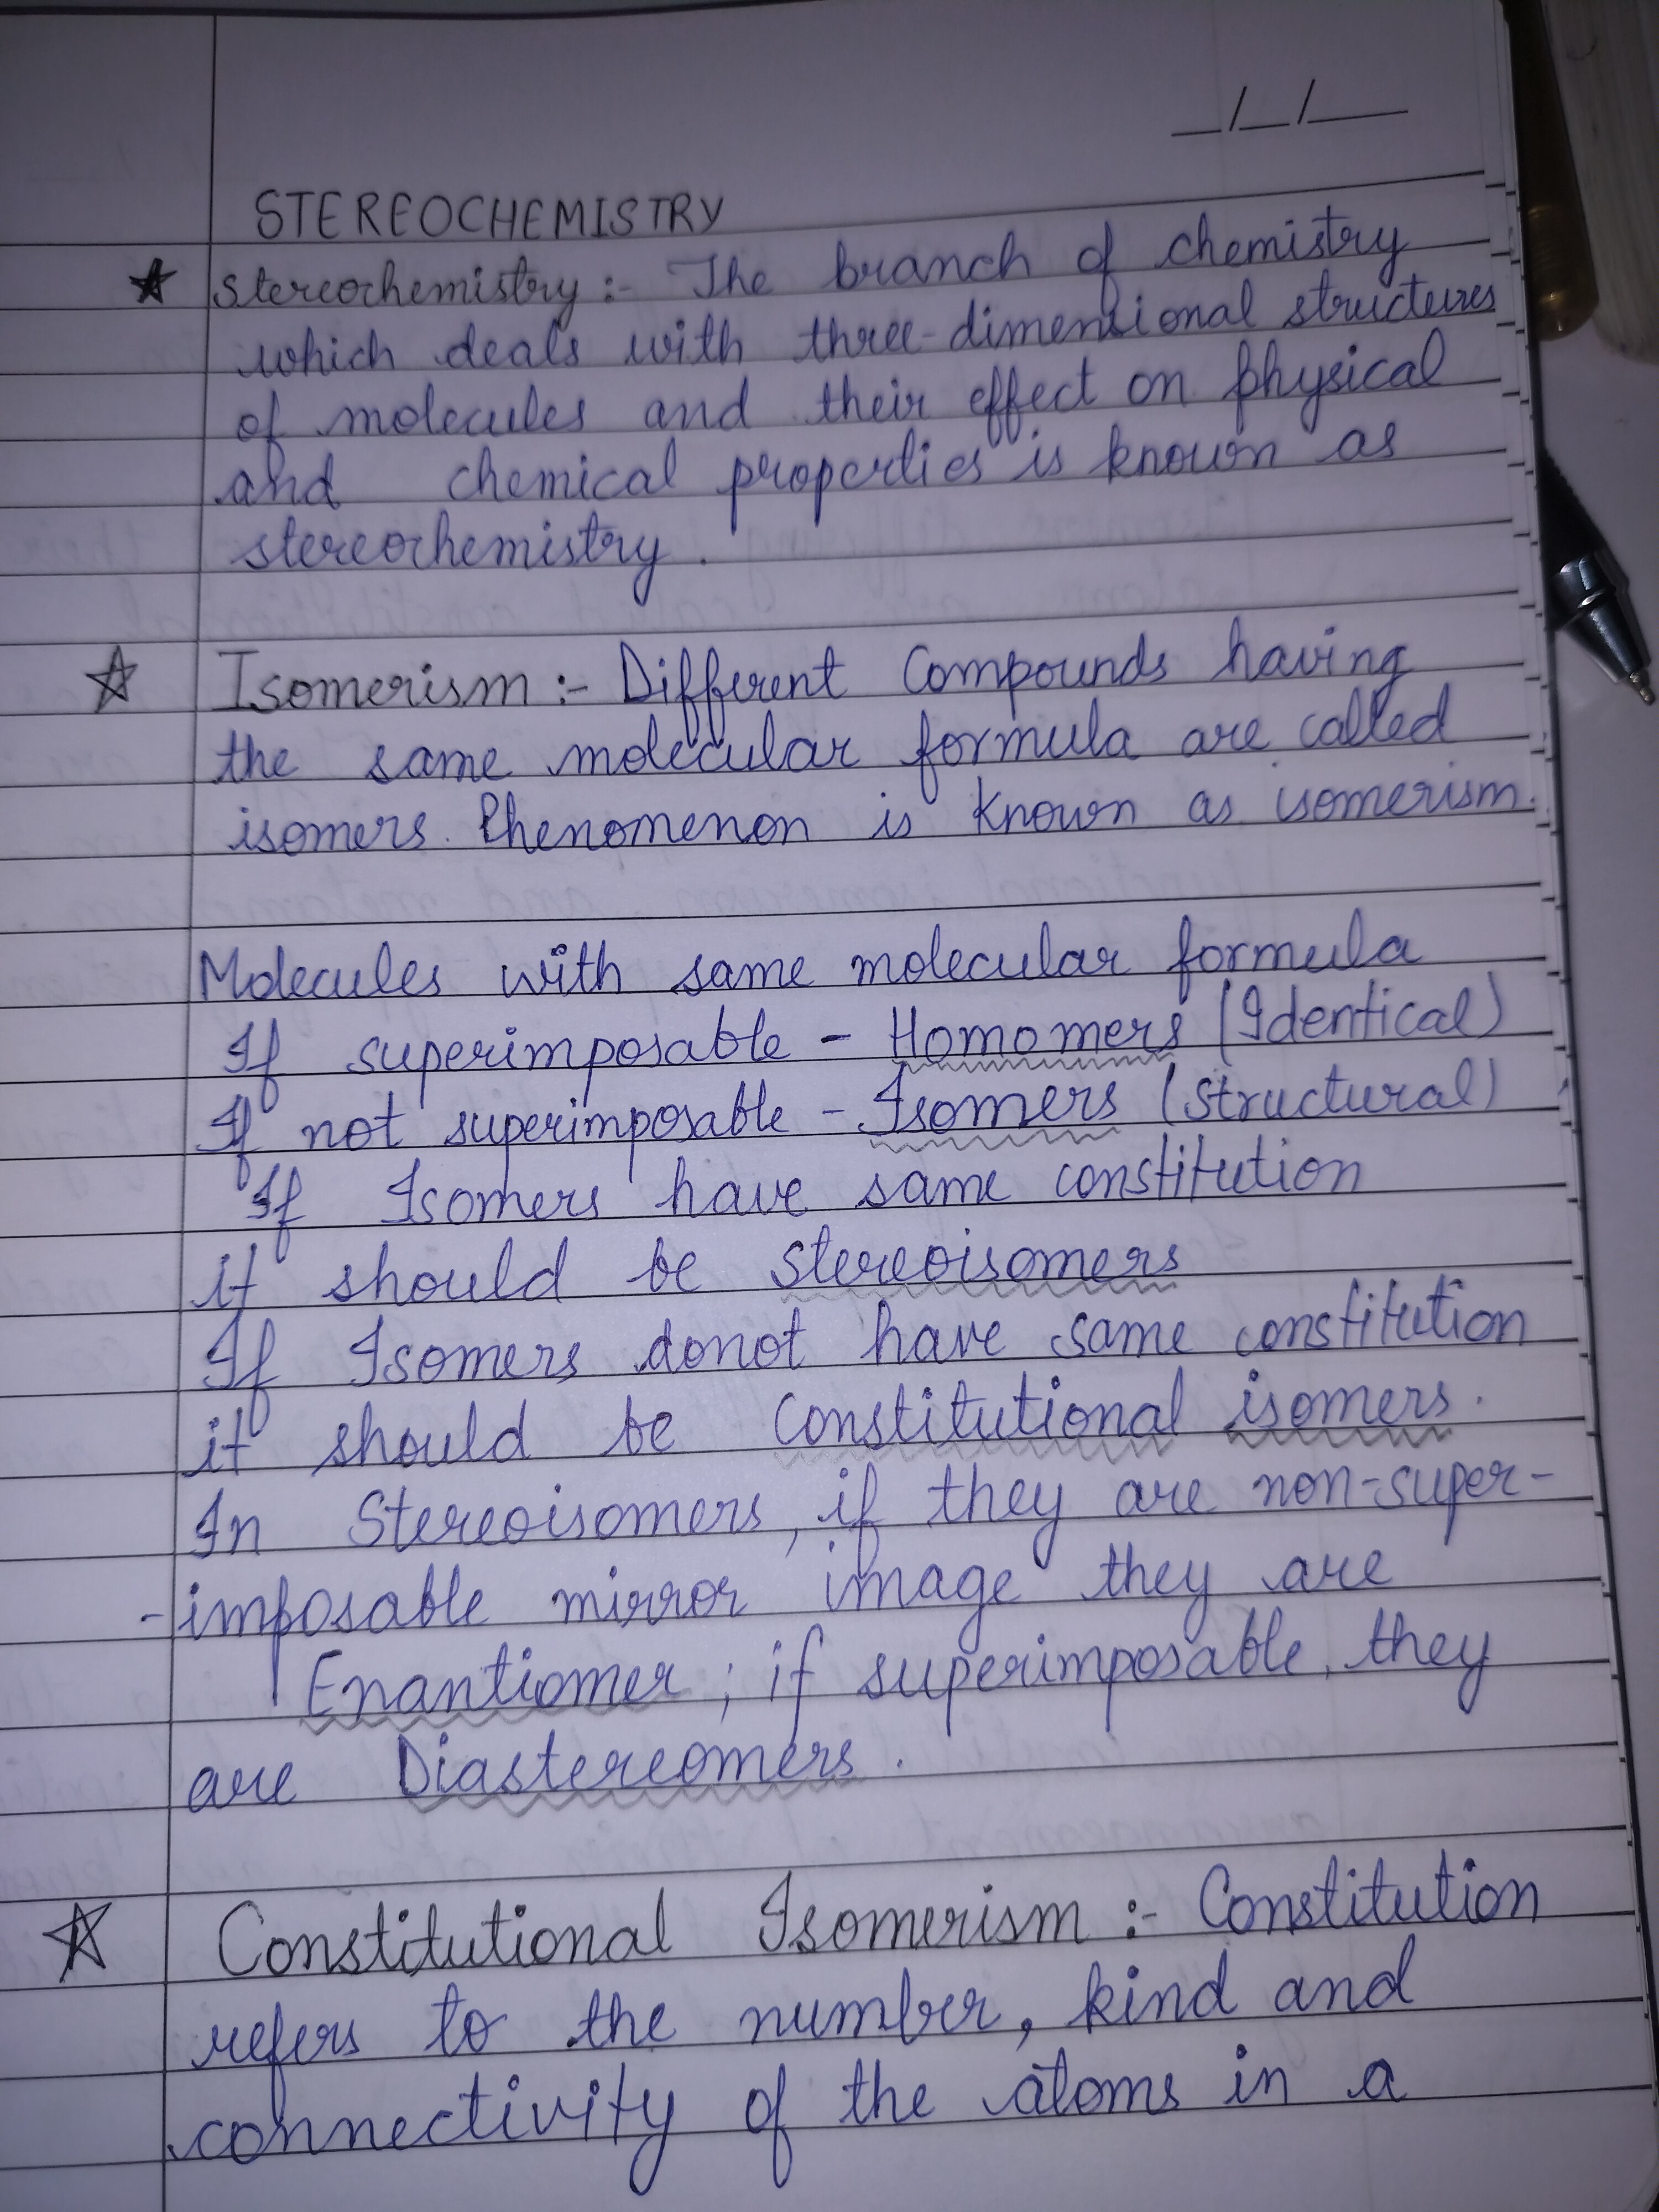 _/_/__
STEREOCHEMISTRY
★ Stereochemistry :- The branch of chemistry
which deals with three-dimensional structures
of molecules and their effect on physical
and chemical properties is known as
stereochemistry.
☆ Isomerism :- Different Compounds having
the same molecular formula are called
isomers. Phenomenon is known as isomerism.
Molecules with same molecular formula
If superimposable - Homomers (Identical)
If not superimposable - Isomers (Structural)
If Isomers have same constitution
it should be stereoisomers
If Isomers donot have same constitution
it should be Constitutional isomers.
In Stereoisomers, if they are non-super-
-imposable mirror image they are
Enantiomer ; if superimposable, they
are Diastereomers.
☆ Constitutional Isomerism :- Constitution
refers to the number, kind and
connectivity of the atoms in a